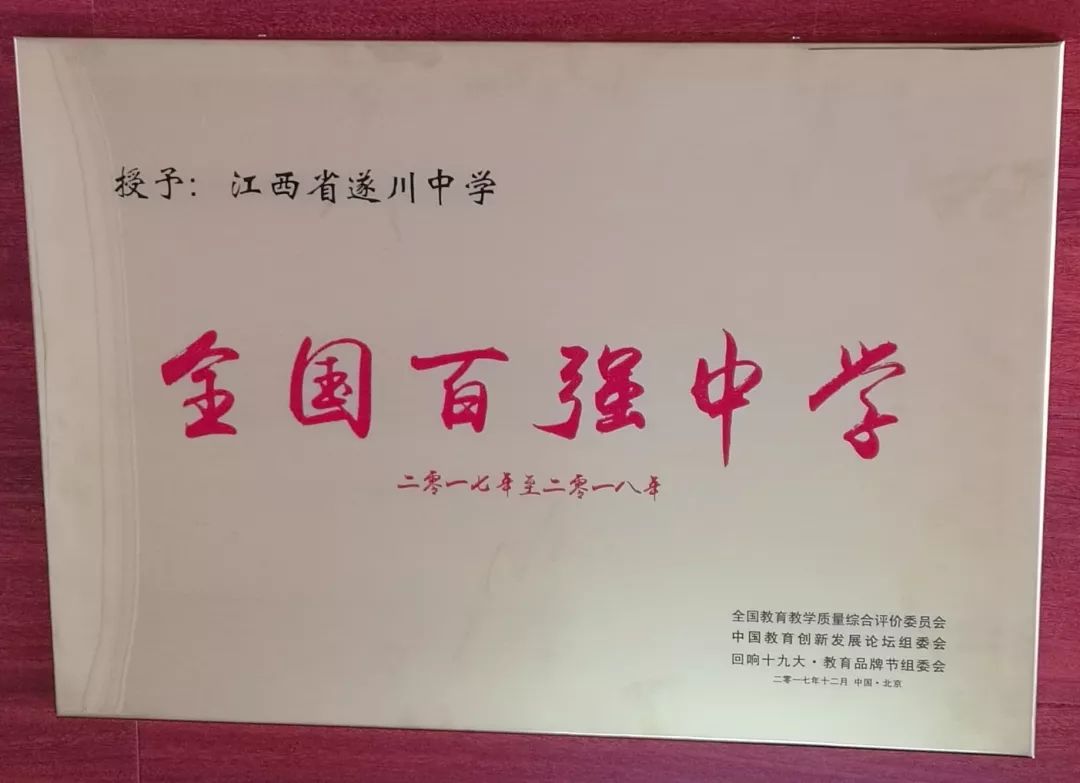 授予：江西省遂川中学
全国百强中学
二零一七年至二零一八年
全国教育教学质量综合评价委员会
中国教育创新发展论坛组委会
回响十九大·教育品牌节组委会
二零一七年十二月 中国·北京